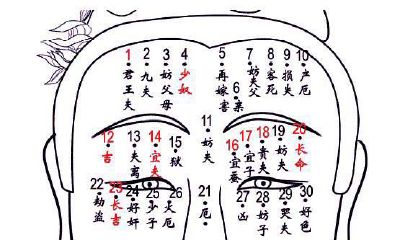 1 君王夫
2 九夫
3 妨父母
4 少奴
5 再嫁害
6 亲
7 妨夫父
8 客死
9 损夫
10 产厄
11 妨夫
12 吉
13 夫离
14 宜夫
15 狱
16 宜蚕
17 宜子
18 贵夫
19 妨夫
20 长命
21 厄
22 劫盗
23 长吉
24 好奸
25 少子
26 火厄
27 凶
28 妨子
29 哭夫
30 好色